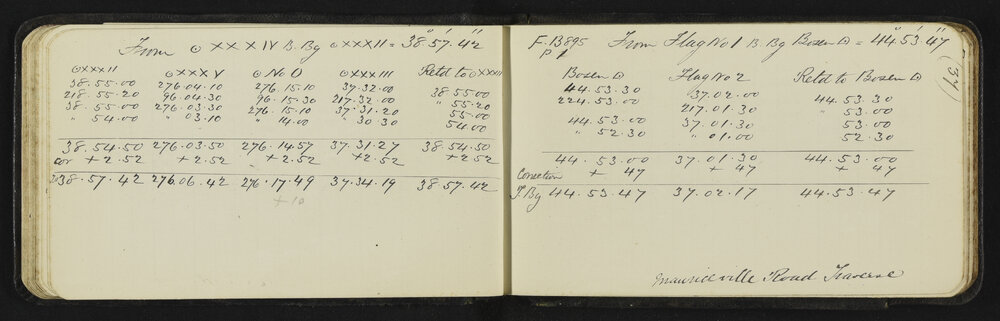 From ⊙XXXIV B. Bg ⊙XXXII = 38°57'42"
⊙XXXII ⊙XXXV ⊙No 0 ⊙XXXIII Retd to ⊙XXXII
38.55.00 276.04.10 276.15.10 37.32.00 38.55.00
218.55.20 96.04.30 96.15.30 217.32.00 " 55.20
38.55.00 276.03.30 276.15.10 37.31.20 " 55.00
" 54.00 " 03.10 " 14.00 " 30.30 54.00
38.54.50 276.03.50 276.14.57 37.31.27 38.54.50
cor +2.52 +2.52 +2.52 +2.52 +2.52
38.57.42 276.06.42 276.17.49 37.34.19 38.57.42
+10
F.B895 From Flag No 1 B. Bg Bosen △ = 44°53'47"
p 1
(37)
Bosen △ Flag No 2 Retd to Bosen △
44.53.30 37.02.00 44.53.30
224.53.00 217.01.30 " 53.00
44.53.00 37.01.30 " 53.00
" 52.30 " 01.00 " 52.30
44.53.00 37.01.30 44.53.00
Correction + 47 + 47 + 47
T. Bg 44.53.47 37.02.17 44.53.47
Mauriceville Road Traverse